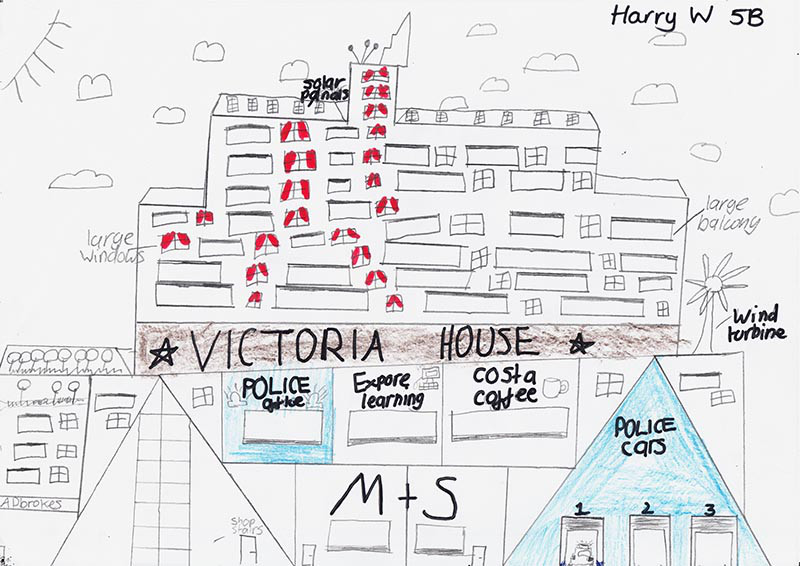 Harry W 5B
solar
panals
large
windows
large
balcony
Wind
turbine
VICTORIA HOUSE
POLICE
Expore
learning
COSTA
coffee
POLICE
cars
M+S
1 2 3
ADbrokes
shop
stairs